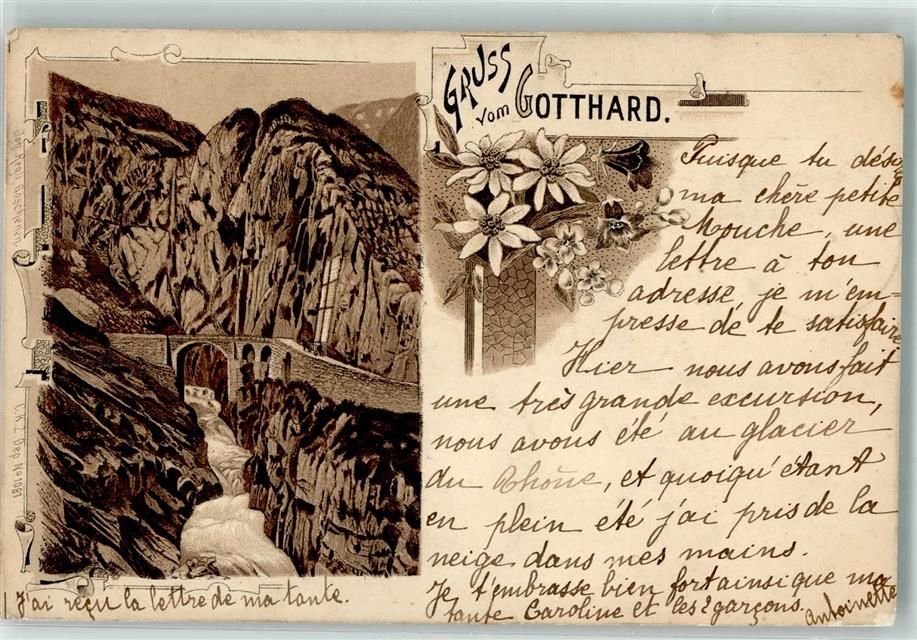 GRUSS
vom GOTTHARD.
Puisque tu dési
ma chère petite
Mouche, une
lettre à ton
adresse, je m'em-
presse de te satisfaire
Hier nous avons fait
une très grande excursion,
nous avons été au glacier
du Rhône, et quoiqu'étant
en plein été j'ai pris de la
neige dans mes mains.
Je t'embrasse bien fort ainsi que ma
tante Caroline et les 2 garçons. Antoinette
J'ai reçu la lettre de ma tante.
Goeschenen
C.K.Z. Dep. No 1081